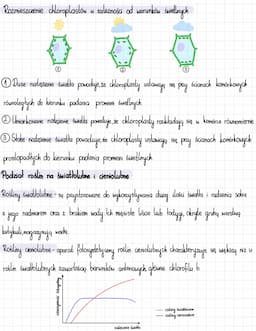 Rozmieszczenie chloroplastów w zależności od warunków świetlnych
① ② ③
① Duże natężenie światła powoduje, że chloroplasty ustawiają się przy ścianach komórkowych
równoległych do kierunku padania promieni świetlnych.
② Umiarkowane natężenie światła powoduje, że chloroplasty rozkładają się w komórce równomiernie.
③ Słabe natężenie światła powoduje, że chloroplasty ustawiają się przy ścianach komórkowych
prostopadłych do kierunku padania promieni świetlnych.
Podział roślin na światłolubne i cieniolubne
Rośliny światłolubne - są przystosowane do wykorzystywania dużej ilości światła i radzenia sobie
z jego nadmiarem oraz z brakiem wody. Ich mięsiste liście lub łodygi, okryte grubą warstwą
kutykuli, magazynują wodę.
Rośliny cieniolubne - aparat fotosyntetyczny roślin cieniolubnych charakteryzuje się większą niż u
roślin światłolubnych zawartością barwników antenowych, głównie chlorofilu b.
natężenie światła
rośliny światłolubne
rośliny cieniolubne